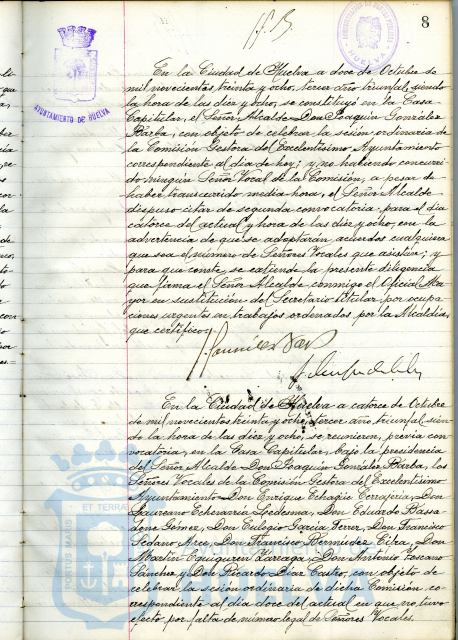 8
AYUNTAMIENTO DE HUELVA
HUELVA
En la Ciudad de Huelva a doce de Octubre de
mil novecientos treinta y ocho, tercer año triunfal, siendo
la hora de las diez y ocho, se constituyó en la Casa
Capitular, el Señor Alcalde Don Joaquín González
Barba, con objeto de celebrar la sesión ordinaria de
la Comisión Gestora del Excelentísimo Ayuntamiento
correspondiente al día de hoy; y no habiendo concurri-
do ningún Señor Vocal de la Comisión, a pesar de
haber transcurrido media hora, el Señor Alcalde
dispuso citar de segunda convocatoria para el día
catorce del actual y hora de las diez y ocho, con la
advertencia de que se adoptarán acuerdos cualquiera
que sea el número de Señores Vocales que asistan; y
para que conste, se extiende la presente diligencia
que firma el Señor Alcalde conmigo el Oficial Ma-
yor en sustitución del Secretario titular por ocupa-
ciones urgentes en trabajos ordenados por la Alcaldía,
que certifico.
En la Ciudad de Huelva a catorce de Octubre
de mil novecientos treinta y ocho, tercer año triunfal, sien-
do la hora de las diez y ocho, se reunieron, previa con-
vocatoria, en la Casa Capitular, bajo la presidencia
del Señor Alcalde Don Joaquín González Barba, los
Señores Vocales de la Comisión Gestora del Excelentísimo
Ayuntamiento Don Enrique Don
Laureano Echevarría Ledesma, Don Eduardo Bassa-
done Gómez, Don Eulogio García Ferrer, Don Francisco
Sedano Arce, Don Francisco Bermúdez Don
Martín Eguiguren Don Antonio Toscano
Sánchez y Don Ricardo Díaz Castro, con objeto de
celebrar la sesión ordinaria de dicha Comisión, co-
rrespondiente al día doce del actual en que no tuvo
efecto por falta de número legal de Señores Vocales.
PORTUS MARIS ET TERRAE